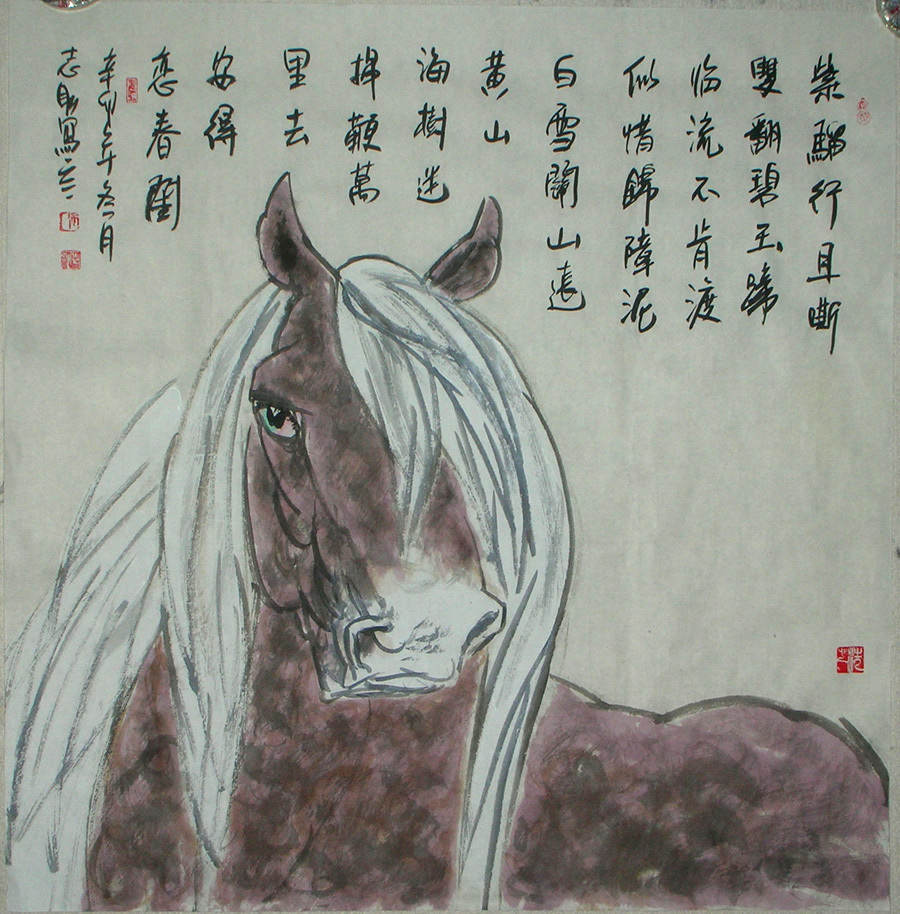 紫騮行且嘶
雙翻碧玉蹄
临流不肯渡
似惜錦障泥
白雪關山遠
黄山
海樹迷
揮鞭萬
里去
安得
恋春閨
辛卯年冬月
志寫